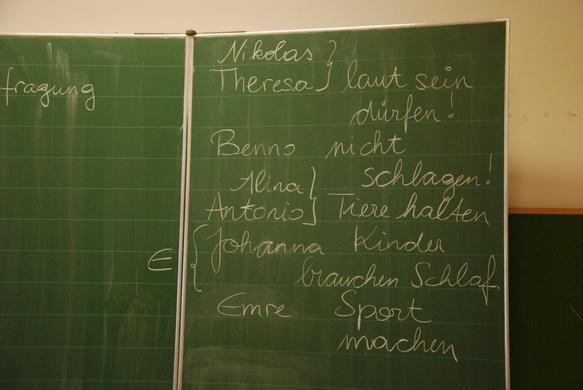 fragung
Nikolas }
Theresa } laut sein
dürfen!
Benno nicht
schlagen!
Alina }
Antonio } Tiere halten
Johanna Kinder
E { brauchen Schlaf.
Emre Sport
machen